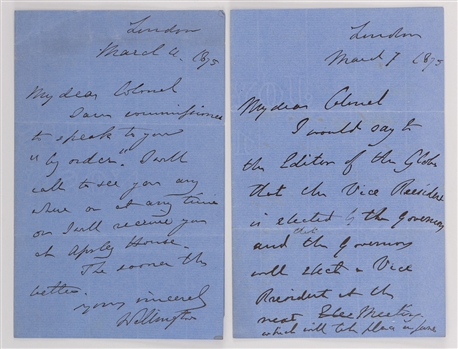 London
March 4. 1875
My dear Colonel
I am commissioned
to speak to you
"by order". I will
call to see you any
where or at any time
or I will receive you
at Apsley House.
The sooner the
better.
yours sincerely
Wellington
London
March 7 1875
My dear Colonel
I would say to
the Editor of the Globe
that the Vice President
is elected by the Governors
and that the Governors
will elect a Vice
President at the
next Meeting
which will take place in June